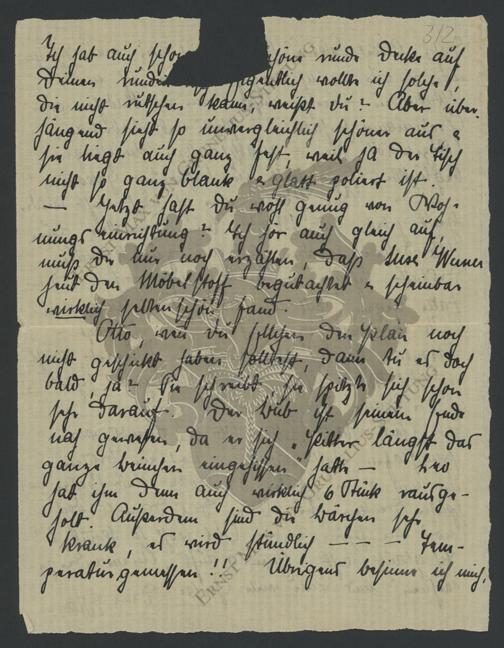 312
Ich hab auch schon schöne runde Decke auf
Deinen runden eigentlich wollte ich solche,
die nicht rutschen kann, weißt du? Aber über-
hängend sieht so unvergleichlich schöner aus &
sie liegt auch ganz fest, weil ja der Tisch
nicht so ganz blank & glatt poliert ist.
— Jetzt hast Du wohl genug von Woh-
nungseinrichtung? Ich hör auch gleich auf,
muß dir nur noch erzählen, daß
heut den Möbelstoff begutachtet & scheinbar
wirklich selten schön fand.
Otto, wenn du den Plan noch
nicht geschickt haben solltest, dann tu es doch
bald, ja? Sie schreibt, sie spitzte sich schon
sehr darauf. Der Bub ist seinem Ende
nah gewesen, da er sich "Splitter längst das
ganze Beinchen eingesissen" hatte — Leo
hat ihm denn auch wirklich 6 Stück rausge-
holt. Außerdem sind die Bärchen sehr
krank, es wird stündlich — — — Tem-
peratur gemessen!! Übrigens besinne ich mich,